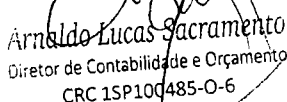 Arnaldo Lucas Sacramento
Diretor de Contabilidade e Orçamento
CRC 1SP100485-O-6